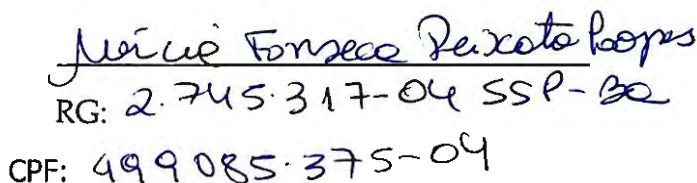 Mércia Fonseca Peixoto Lopes
RG: 2.745.317-04 SSP-Ba
CPF: 499085.375-04